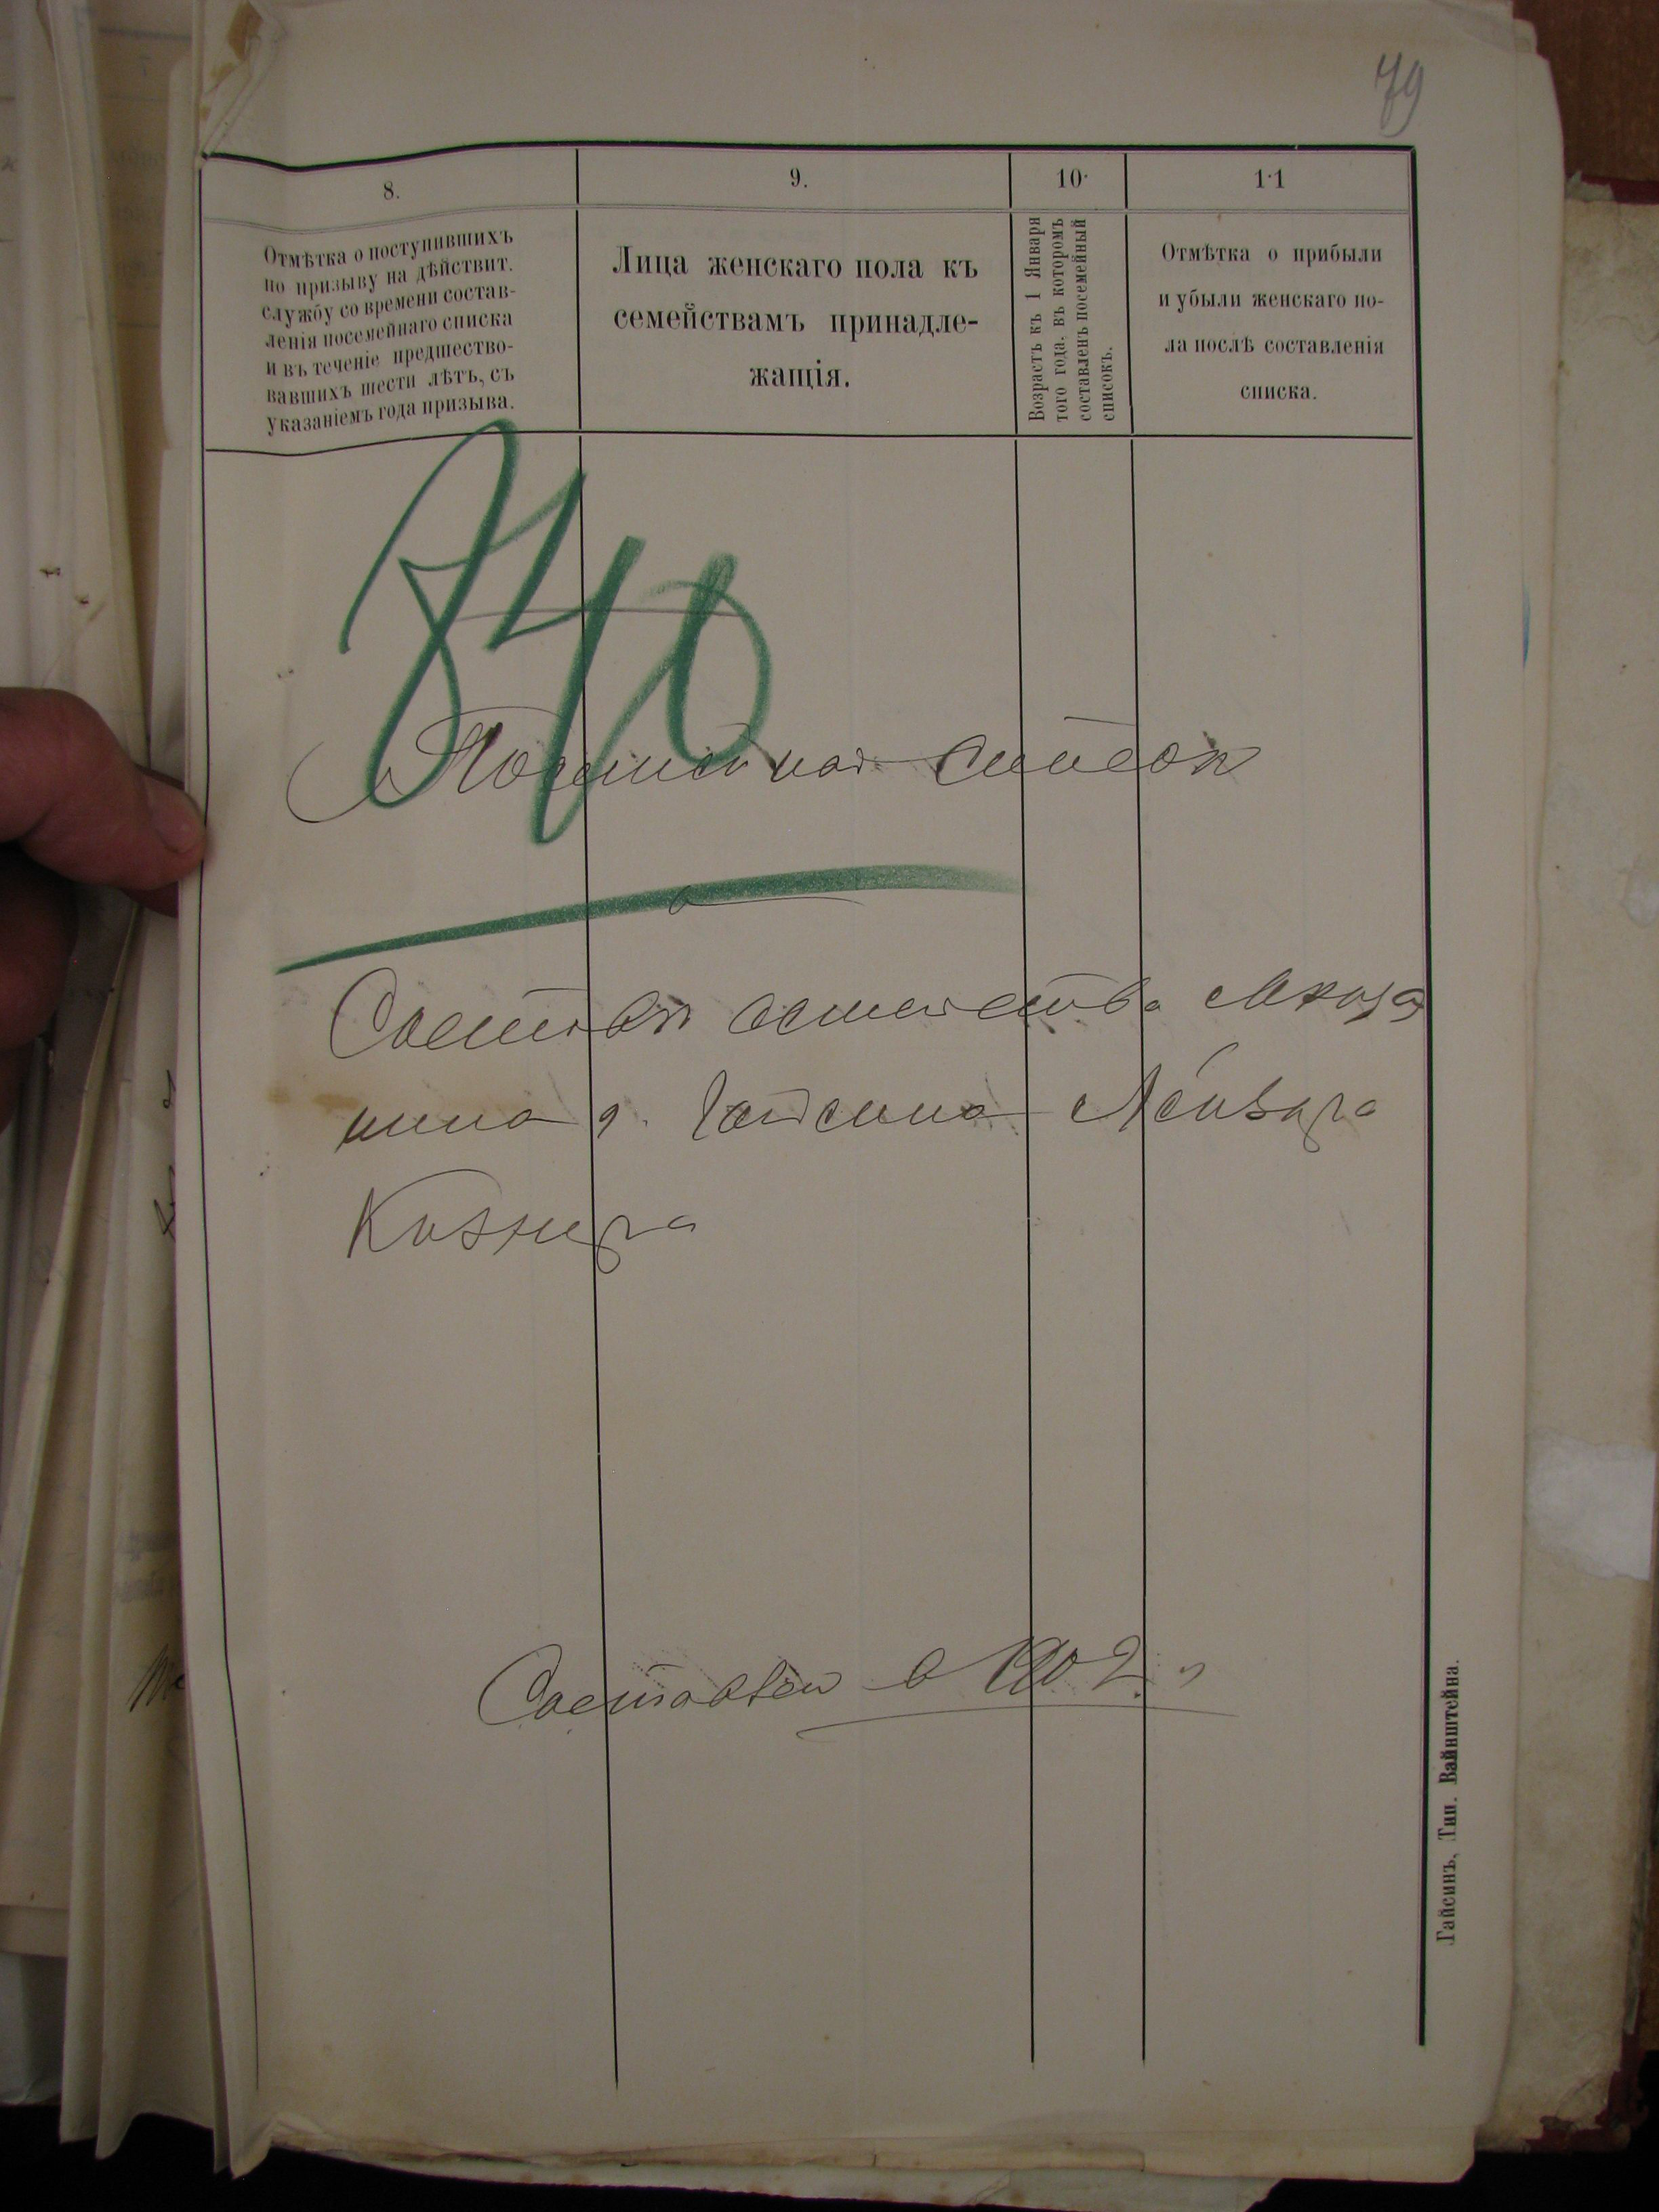 79
8.
Отмѣтка о поступившихъ
по призыву на дѣйствит.
службу со времени состав-
ленія посемейнаго списка
и въ теченіе предшество-
вавшихъ шести лѣтъ, съ
указаніемъ года призыва.
9.
Лица женскаго пола къ
семействамъ принадле-
жащія.
10.
Возрастъ къ 1 Января
того года, въ которомъ
составленъ посемейный
списокъ.
11
Отмѣтка о прибыли
и убыли женскаго по-
ла послѣ составленія
списка.
840
Посемейный список
о
Составѣ семейства Мѣща
нина г. Гайсина Лейзера
Кизнера
Составлен в 1902 г
Гайсинъ, Тип. Вайнштейна.